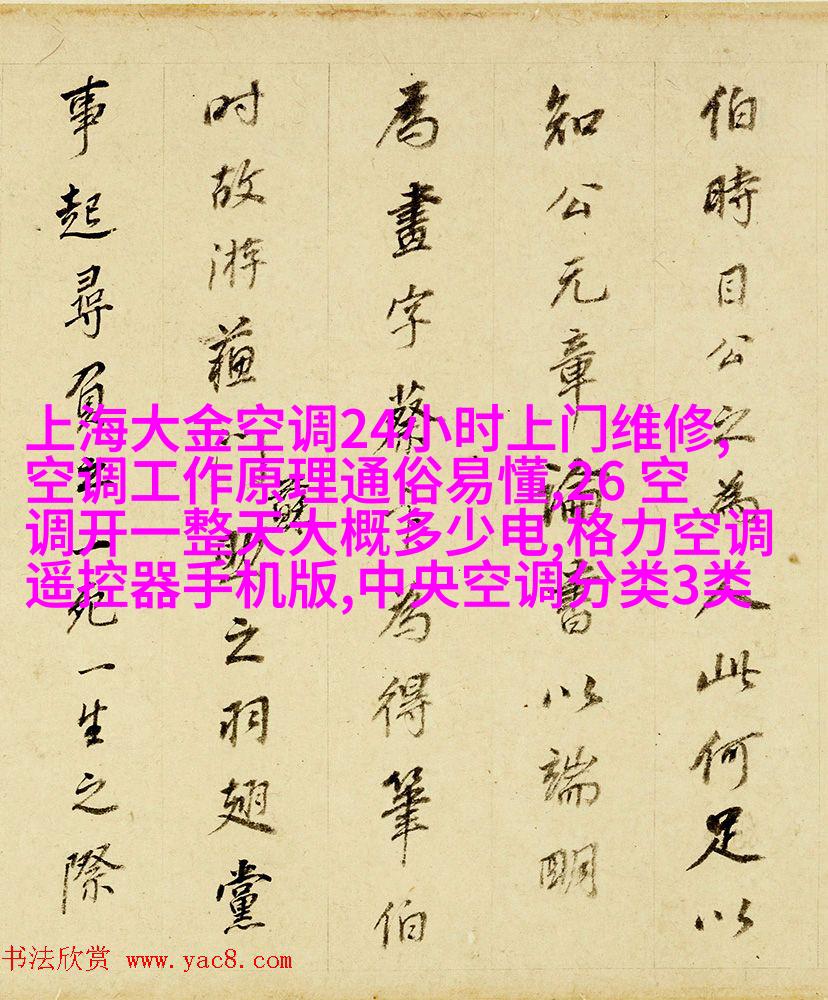 伯時目公之為人此何足以
知公元章論書以端明
為畫字蔡為得筆伯
时故游蘓之羽翅黨
事起尋負一死一生之際
上海大金空调24小时上门维修,
空调工作原理通俗易懂,26 空
调开一整天大概多少电,格力空调
遥控器手机版,中央空调分类3类
书法欣赏 www.yac8.com